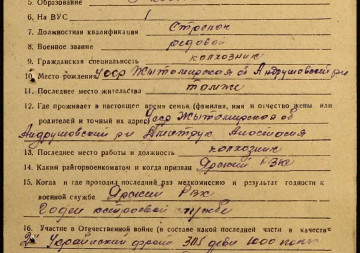 5. Образование
6. На ВУС 1
7. Должностная квалификация Стрелок
8. Военное звание рядовой
9. Гражданская специальность колхозник
10. Место рождения УССР Жытомирская об Андрушовский р-н
11. Последнее место жительства там же
12. Где проживает в настоящее время семья (фамилия, имя и отчество жены или
родителей и точный их адрес) УССР Жытомирская об
Андрушовский р-н
13. Последнее место работы и должность колхозник
14. Каким райгорвоенкоматом и когда призван РВК
15. Когда и где проходил последний раз медкомиссию и результат годности к
военной службе РВК
Годен к строевой службе
16. Участие в Отечественной войне (в составе какой последней части и в качестве
2й Украинский фронт 305 1000